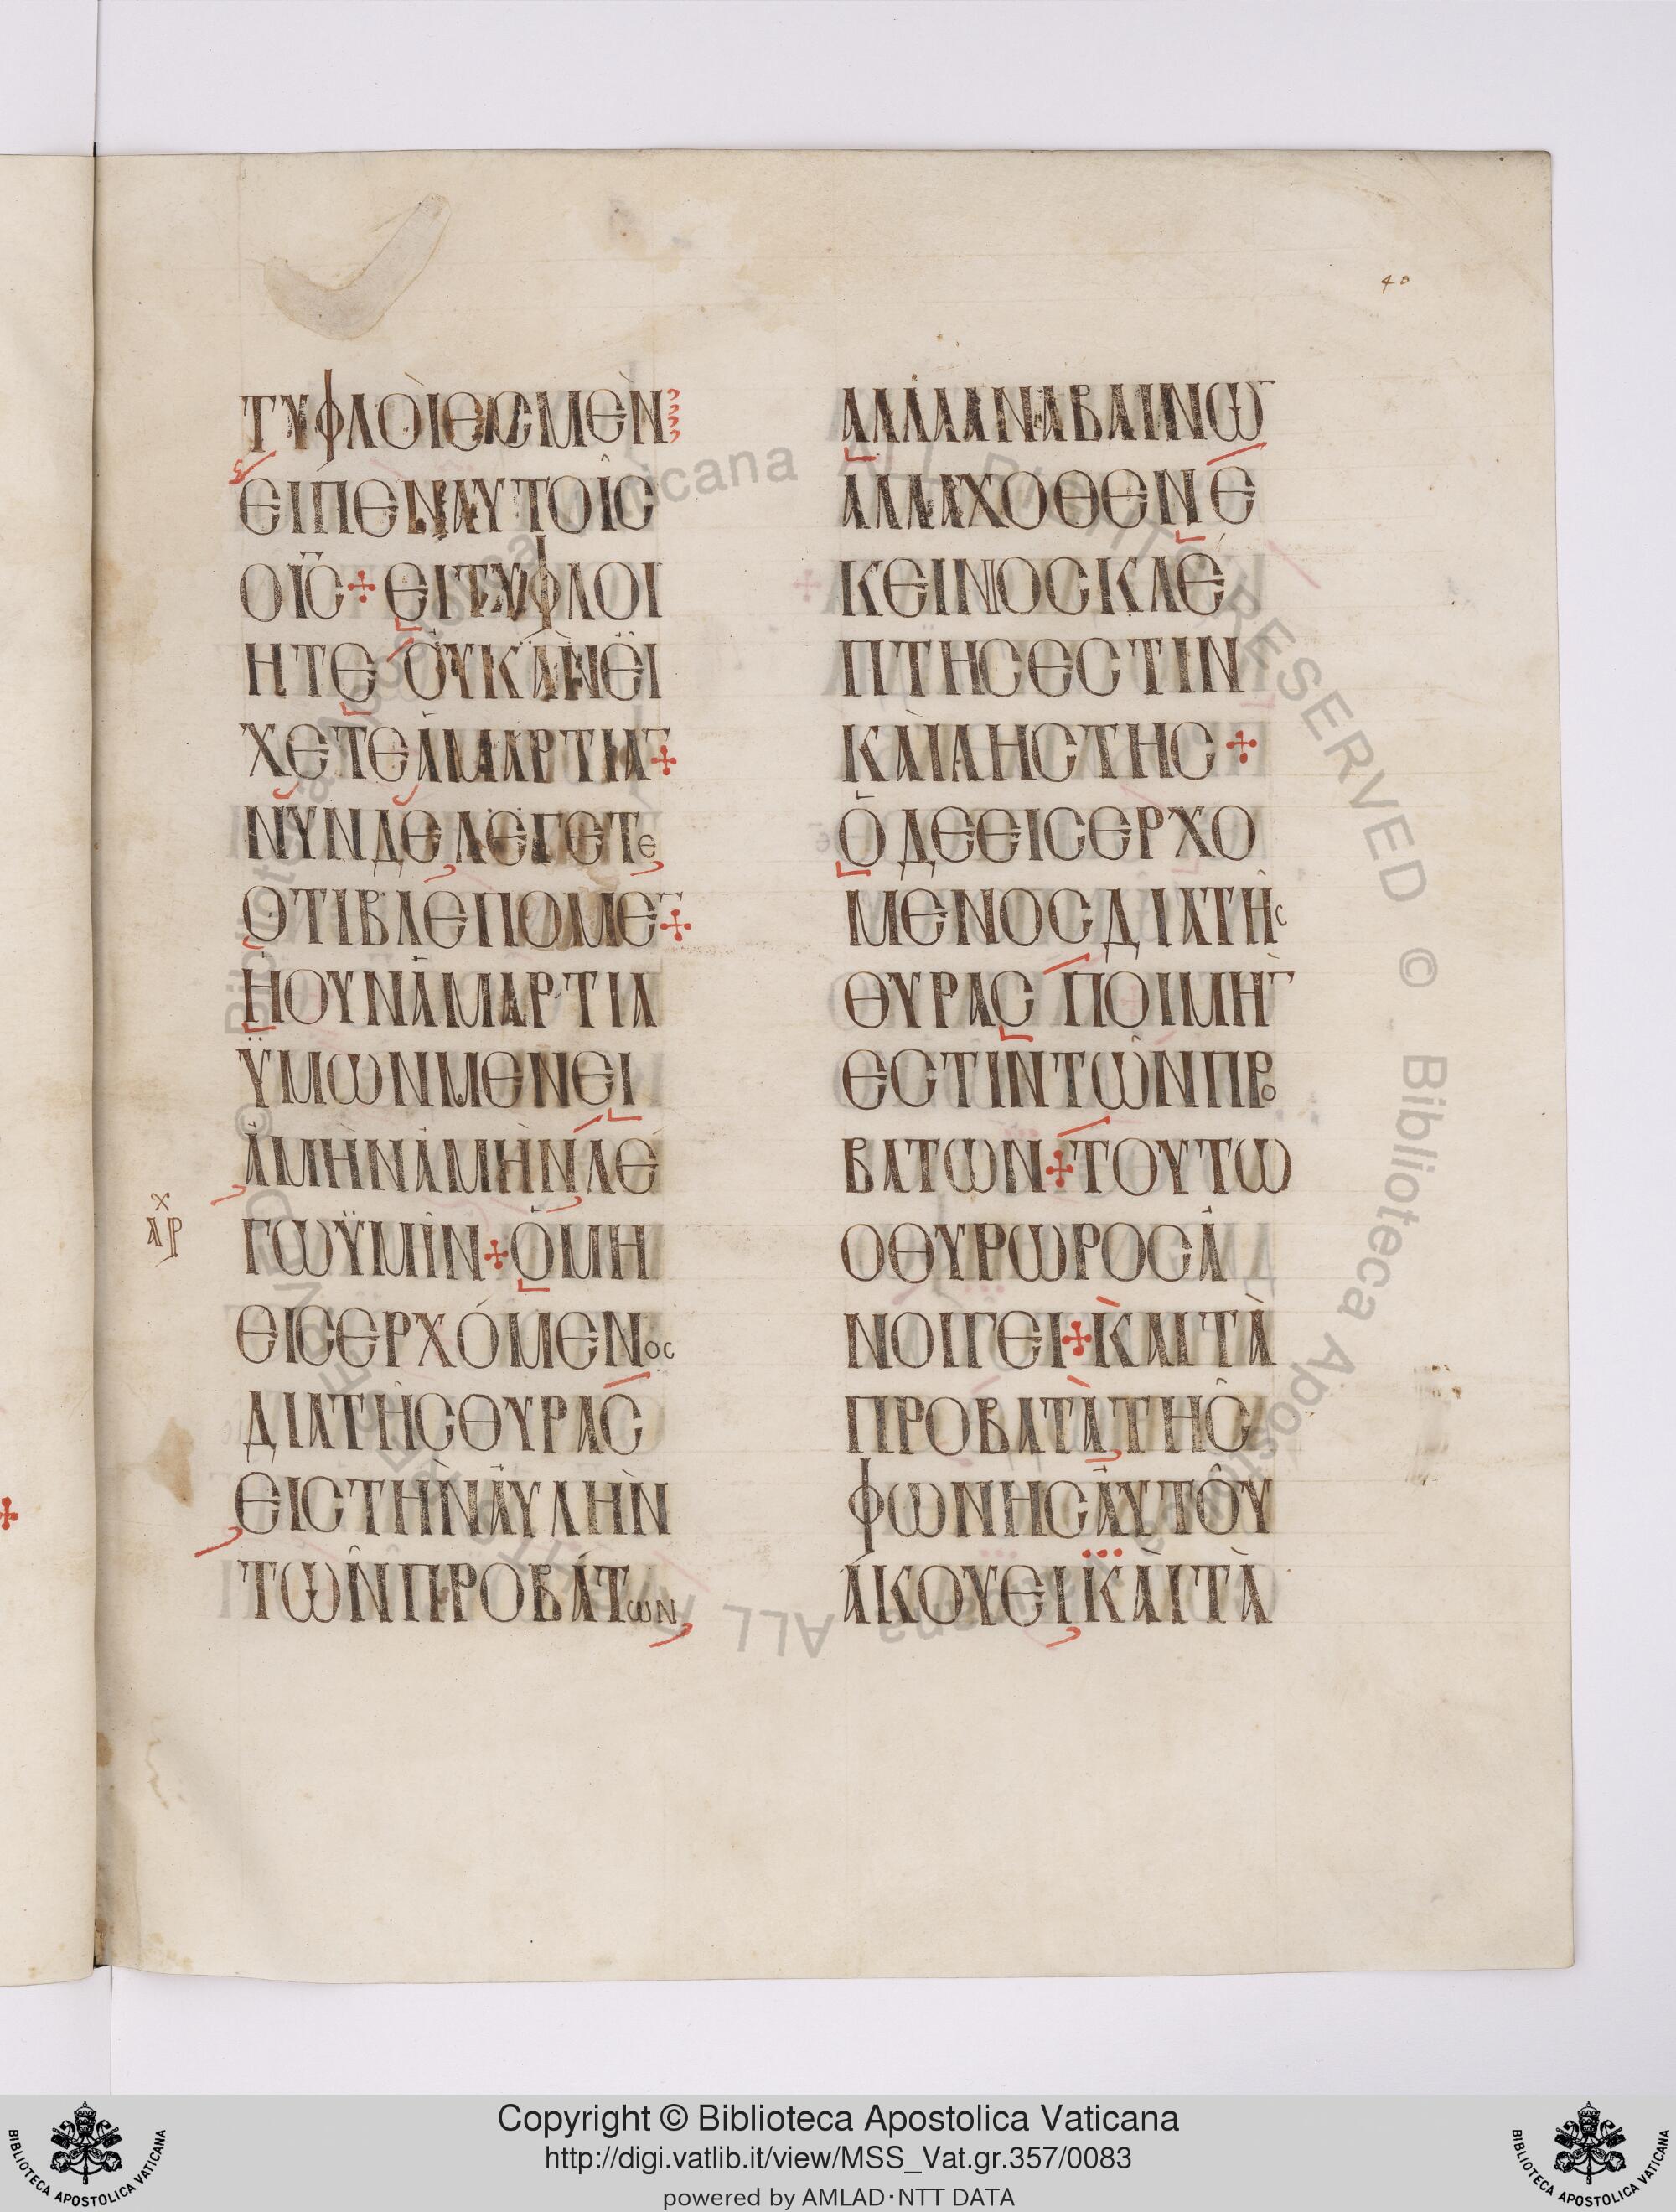 40
ΤΥΦΛΟὶΕCΜΕΝ
ΕΙΠΕΝΑΥΤΟῖC
ΟΙ̅C̅ + ΕΙΤΥΦΛΟΙ
ΗΤΕ ΟΥΚἂΝΕἶ
ΧΕΤΕἁΜΑΡΤΙΑ¯ +
ΝῦΝΔΕΛΕΓΕΤΕ
ΟΤΙΒΛΕΠΟΜΕ¯ +
ἩΟΥΝἁΜΑΡΤΙΑ
ΫΜΩΝΜΕΝΕΙ
ἀΜὴΝἀΜὴΝΛΕ
ΓΩΫΜῖΝ + ὁΜΗ
ΕΙCΕΡΧόΜΕΝΟC
ΔΙΑΤῆCΘΥΡΑC
ΕΙCΤὴΝΑὐΛὴΝ
ΤῶΝΠΡΟΒάΤΩΝ
ΑΡΧ
ΑΛΛΑΑΝΑΒΑΙΝΩ¯
ΑΛΛΑΧΟΘΕΝ Ε
ΚΕΙΝΟCΚΛέ
ΠΤΗCΕCΤΙΝ
ΚΑὶΛΗCΤΗC +
ὁΔΕΕΙCΕΡΧΟ
ΜΕΝΟCΔΙΑΤῆC
ΘΥΡΑC ΠΟΙΜὴ¯
ΕCΤΙΝΤῶΝΠΡΟ
ΒΑΤΩΝ + ΤΟΥΤΩ
ΟΘΥΡΩΡΟCἀ
ΝΟΙΓΕΙ + ΚΑΙΤὰ
ΠΡΟΒΑΤὰΤΗC
ΦΩΝΗCΑὐΤΟῦ
ἀΚΟΥΕΙ ΚΑὶΤὰ
Copyright © Biblioteca Apostolica Vaticana
http://digi.vatlib.it/view/MSS_Vat.gr.357/0083
powered by AMLAD·NTT DATA
BIBLIOTECA APOSTOLICA VATICANA
BIBLIOTECA APOSTOLICA VATICANA